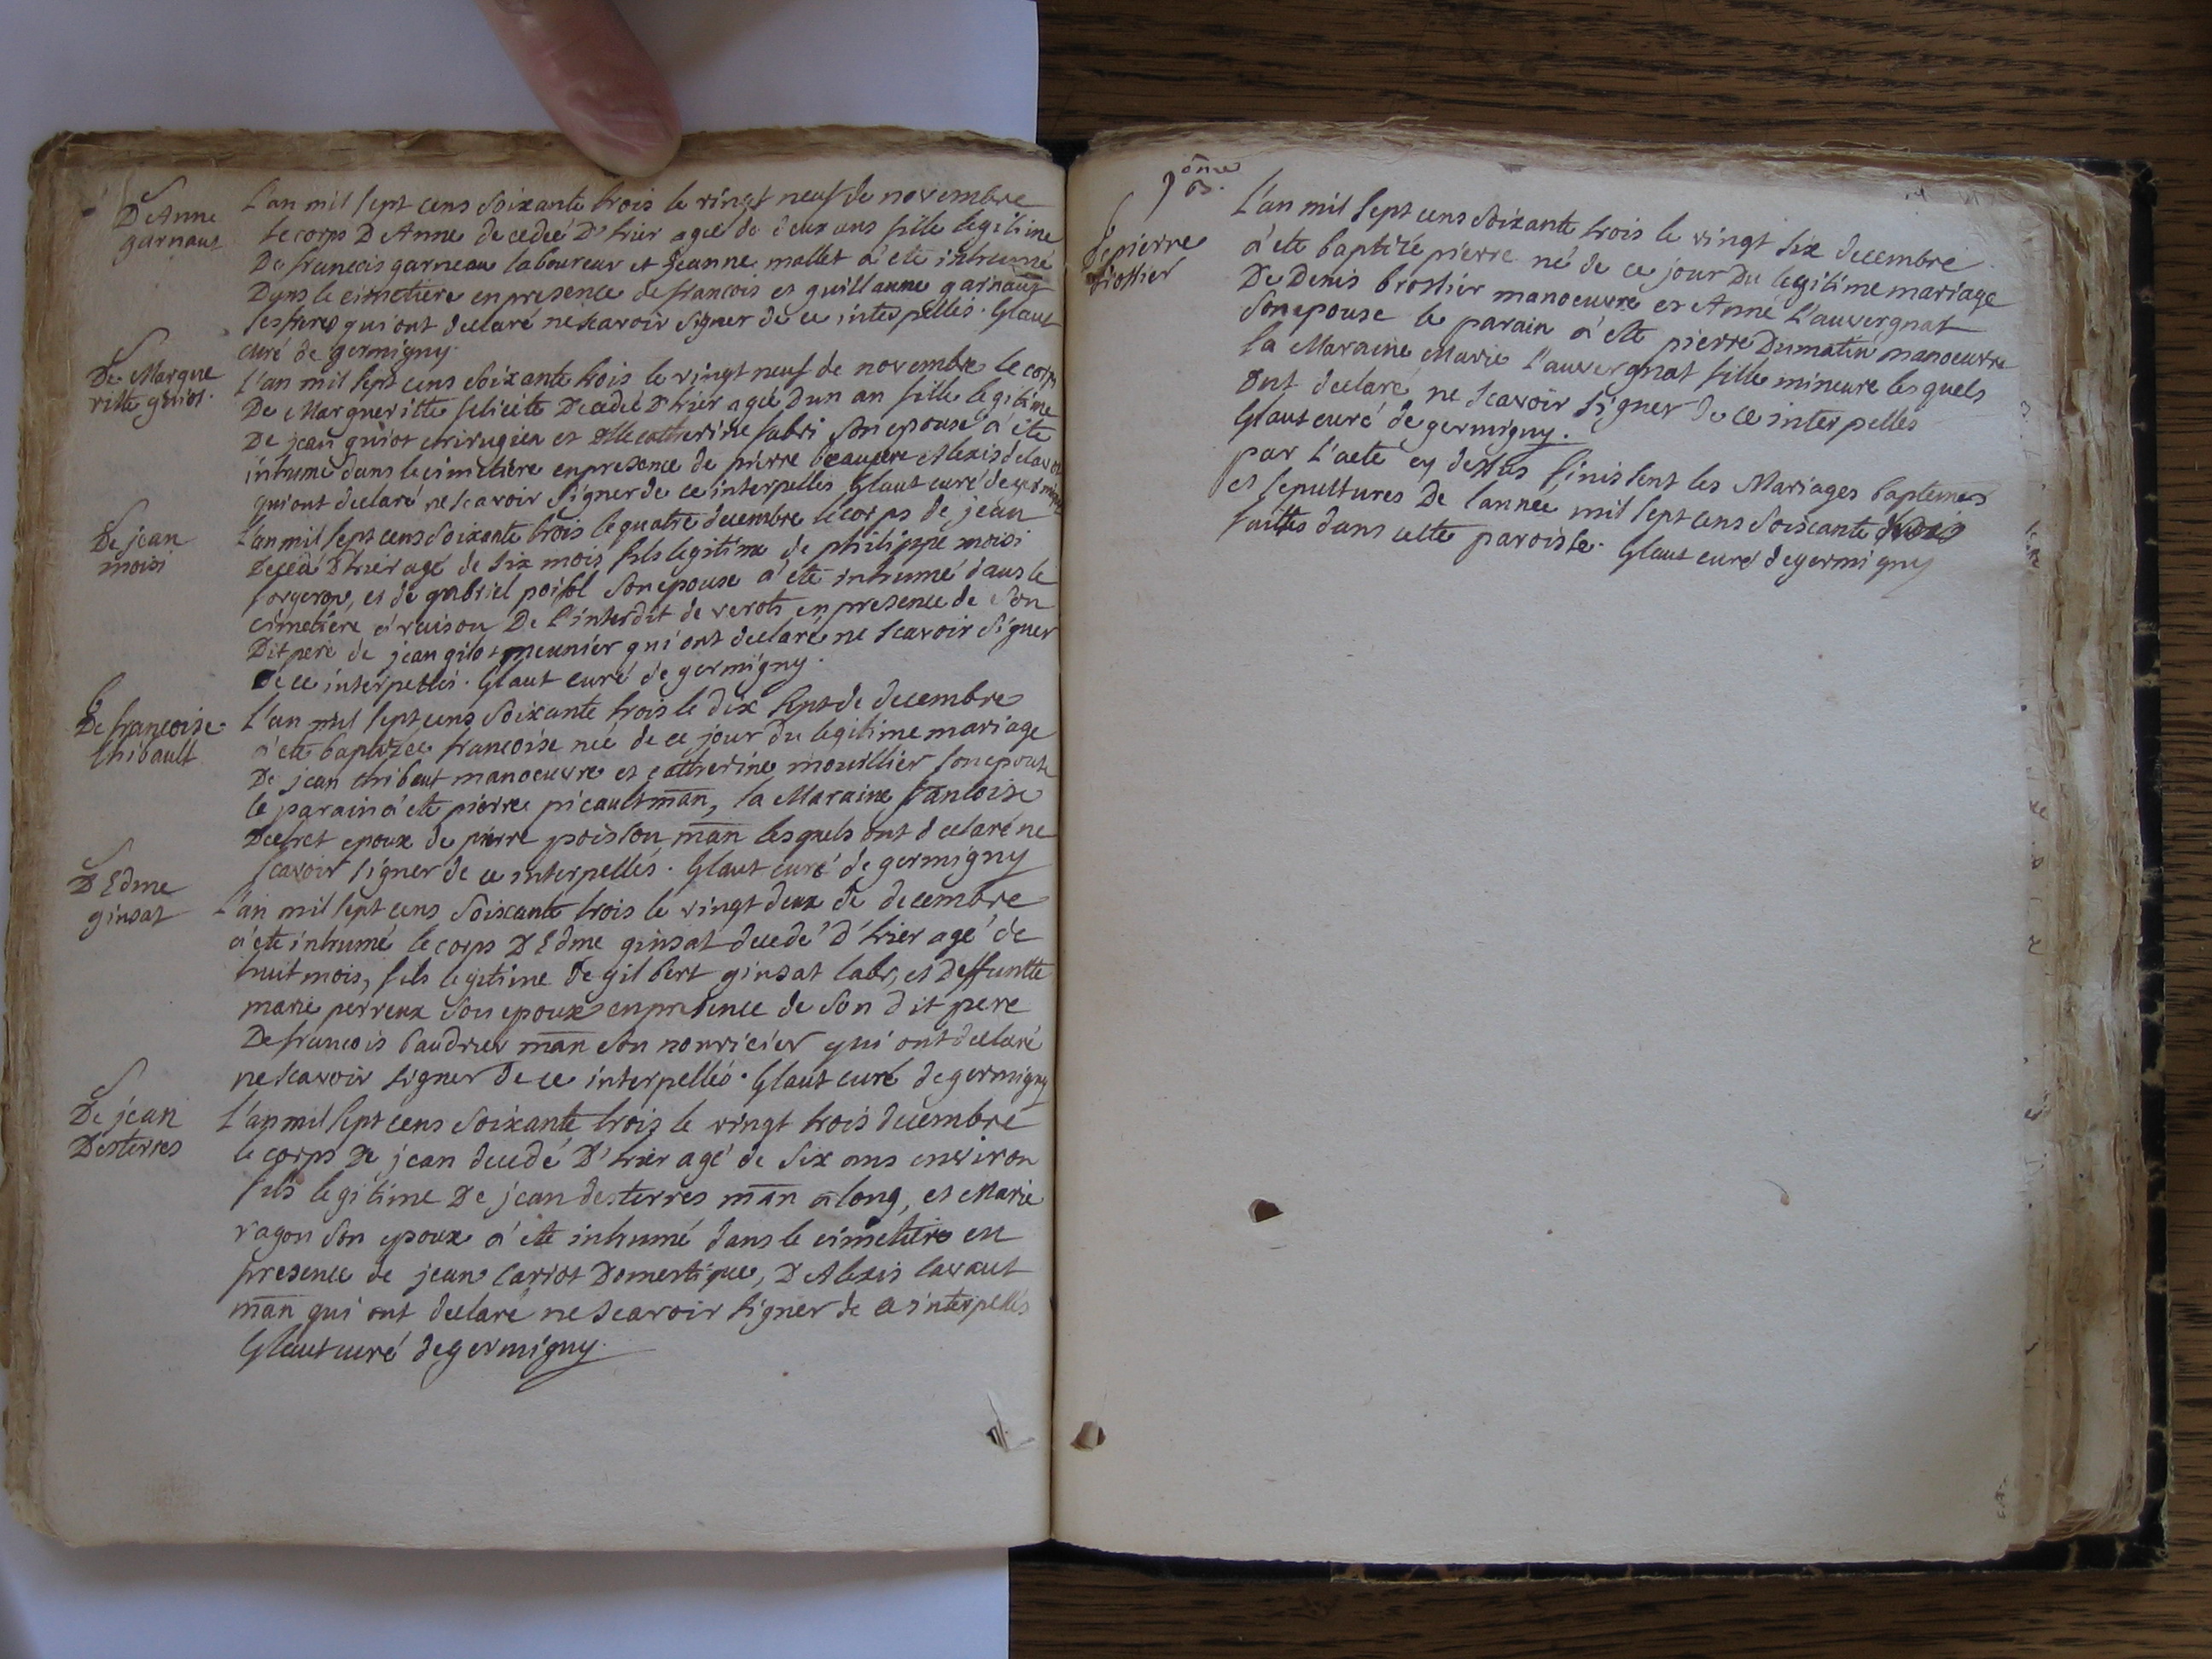 S
D Anne
garnaut
L'an mil sept cens soixante trois le vingt neuf de novembre
le corps D Anne decedeé D'hier ageé de deux ans fille legitime
De francois garneau laboureur et Jeanne mallet a eté inhumé
Dans le cimetiere en presence de francois et guillaume garnaut
ses freres qui ont declaré ne scavoir signer de ce interpellés. Glaut
curé de germigny.
S
De Margue
ritte guiot.
L'an mil sept cens soixante trois le vingt neuf de novembre le corps
De Margueritte felicité Decedeé D'hier ageé Dun an fille legitime
De jean guiot chirugien et catherine fabri son epouse a eté
inhumé dans le cimetiere en presence de pierre Alexis
qui ont declaré ne scavoir signer de ce interpellés Glaut curé de germigny
S
De jean
moisi
L'an mil sept cens soixante trois le quatre decembre le corps de jean
Decedé D'hier agé de six mois fils legitime de philippe moisi
forgeron, et de gabriel poifol son epouse a eté inhumé dans le
cimetiere a raison De l'interdit de verots en presence de son
Dit pere de jean gilot meunier qui ont declaré ne scavoir signer
de ce interpellés. Glaut curé de germigny.
B
De francoise
thibault
L'an mil sept cens soixante trois le dix sept de decembre
a eté baptizeé francoise neé de ce jour du legitime mariage
De jean thibaut manoeuvre et catherine mouillier son epouse
le parain a eté pierre picault man, la Maraine francoise
Decret epoux de pierre poisson man lesquels ont declaré ne
scavoir signer de ce interpellés. Glaut curé de germigny
S
D Edme
ginsat
L'an mil sept cens soixante trois le vingt deux de decembre
a eté inhumé le corps D Edme ginsat decedé D'hier agé de
huit mois, fils legitime de gilbert ginsat labr, et Deffuntte
marie perreux son epoux en presence de son dit pere
De francois baudrier man son nourricier qui ont declaré
ne scavoir signer De ce interpellés. Glaut curé de germigny
S
De jean
Desterres
L'an mil sept cens soixante trois le vingt trois decembre
le corps De jean decedé D'hier agé de six ans environ
fils legitime De jean desterres man a long, et Marie
ragon son epoux a eté inhumé dans le cimetiere en
presence de jean Carriot Domestique, D Alexis lavaut
man qui ont declaré ne scavoir signer de ce interpellés
Glaut curé de germigny.
B
De pierre
brossier
L'an mil sept cens soixante trois le vingt six decembre
a eté baptizé pierre né de ce jour Du legitime mariage
De Denis brossier manoeuvre et Anne L'auvergnat
son epouse le parain a eté pierre Dumatin manoeuvre
la Maraine Marie L'auvergnat fille mineure lesquels
ont declaré ne scavoir signer de ce interpellés
Glaut curé de germigny.
par L'acte cy dessus finissent les Mariages baptemes
et sepultures De l'anneé mil sept cens soixante trois
faittes dans cette paroisse. Glaut curé de germigny